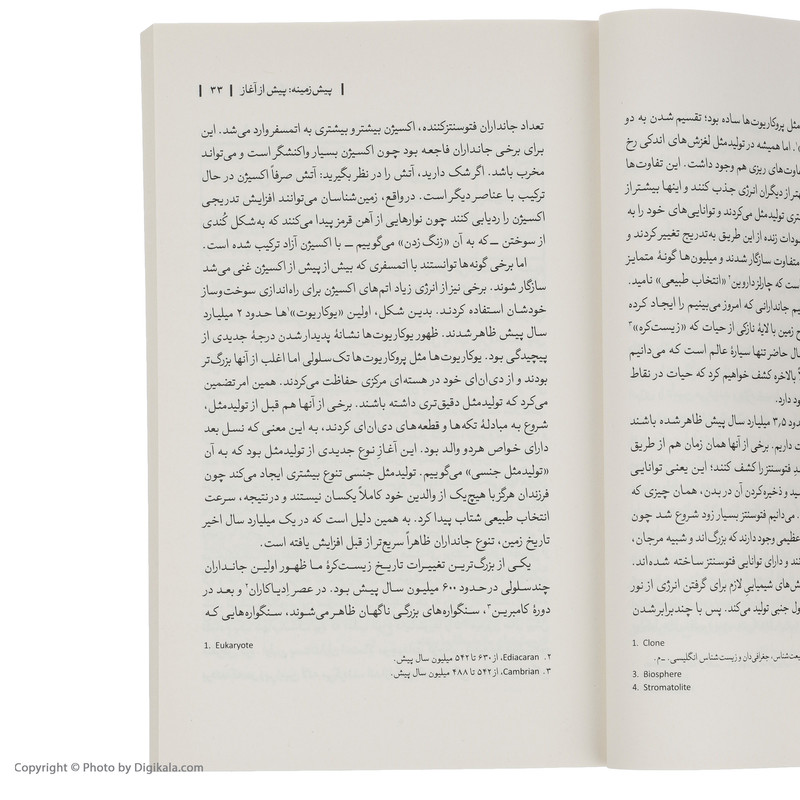 پیش‌زمینه: پیش از آغاز | ۳۳ |
تعداد جانداران فتوسنتزکننده، اکسیژن بیشتر و بیشتری به اتمسفر وارد می‌شد. این
برای برخی جانداران فاجعه بود چون اکسیژن بسیار واکنشگر است و می‌تواند
مخرب باشد. اگر شک دارید، آتش را در نظر بگیرید: آتش صرفاً اکسیژن در حال
ترکیب با عناصر دیگر است. درواقع، زمین‌شناسان می‌توانند افزایش تدریجی
اکسیژن را ردیابی کنند چون نوارهایی از آهن قرمز پیدا می‌کنند که به‌شکل کُندی
از سوختن ــ که به آن «زنگ زدن» می‌گوییم ــ با اکسیژن آزاد ترکیب شده است.
اما برخی گونه‌ها توانستند با اتمسفری که بیش از پیش از اکسیژن غنی می‌شد
سازگار شوند. برخی نیز از انرژی زیاد اتم‌های اکسیژن برای راه‌اندازی سوخت‌وساز
خودشان استفاده کردند. بدین شکل، اولین «یوکاریوت»۱ها حدود ۲ میلیارد
سال پیش ظاهر شدند. ظهور یوکاریوت‌ها نشانهٔ پدیدار شدن درجهٔ جدیدی از
پیچیدگی بود. یوکاریوت‌ها مثل پروکاریوت‌ها تک‌سلولی اما اغلب از آنها بزرگ‌تر
بودند و از دی‌ان‌ای خود در هسته‌ای مرکزی حفاظت می‌کردند. همین امر تضمین
می‌کرد که تولیدمثل دقیق‌تری داشته باشند. برخی از آنها هم قبل از تولیدمثل،
شروع به مبادلهٔ تکه‌ها و قطعه‌های دی‌ان‌ای کردند، به این معنی که نسل بعد
دارای خواص هر دو والد بود. این آغازِ نوع جدیدی از تولیدمثل بود که به آن
«تولیدمثل جنسی» می‌گوییم. تولیدمثل جنسی تنوع بیشتری ایجاد می‌کند چون
فرزندان هرگز با هیچ‌یک از والدین خود کاملاً یکسان نیستند و درنتیجه، سرعت
انتخاب طبیعی شتاب پیدا کرد. به همین دلیل است که در یک میلیارد سال اخیر
تاریخ زمین، تنوع جانداران ظاهراً سریع‌تر از قبل افزایش یافته است.
یکی از بزرگ‌ترین تغییرات تاریخ زیست‌کرهٔ ما ظهور اولین جانداران
چندسلولی در حدود ۶۰۰ میلیون سال پیش بود. در عصر اِدیاکاران۲ و بعد در
دورهٔ کامبرین۳، سنگواره‌های بزرگی ناگهان ظاهر می‌شوند، سنگواره‌هایی که
1. Eukaryote
۲. Ediacaran، از ۶۳۰ تا ۵۴۲ میلیون سال پیش.
۳. Cambrian، از ۵۴۲ تا ۴۸۸ میلیون سال پیش.
مثل پروکاریوت‌ها ساده بود؛ تقسیم شدن به دو
اما همیشه در تولیدمثل لغزش‌های اندکی رخ
تفاوت‌های ریزی هم وجود داشت. این تفاوت‌ها
از دیگران انرژی جذب کنند و اینها بیشتر از
تولیدمثل می‌کردند و توانایی‌های خود را به
زنده از این طریق به‌تدریج تغییر کردند و
متفاوت سازگار شدند و میلیون‌ها گونهٔ متمایز
است که چارلز داروین۲ «انتخاب طبیعی» نامید.
جاندارانی که امروز می‌بینیم را ایجاد کرده
زمین با لایهٔ نازکی از حیات که «زیست‌کره»۳
حال حاضر تنها سیارهٔ عالم است که می‌دانیم
بالاخره کشف خواهیم کرد که حیات در نقاط
دارد.
۳٫۵ میلیارد سال پیش ظاهر شده باشند
داریم. برخی از آنها همان زمان هم از طریق
فتوسنتز را کشف کنند؛ این یعنی توانایی
و ذخیره کردن آن در بدن، همان چیزی که
می‌دانیم فتوسنتز بسیار زود شروع شد چون
عظیمی وجود دارند که بزرگ‌اند و شبیه مرجان،
و دارای توانایی فتوسنتز ساخته شده‌اند.
شیمیاییِ لازم برای گرفتن انرژی از نور
جنبی تولید می‌کند. پس با چند برابر شدن
1. Clone
جغرافی‌دان و زیست‌شناس انگلیسی. ــ م.
3. Biosphere
4. Stromatolite
Copyright © Photo by Digikala.com